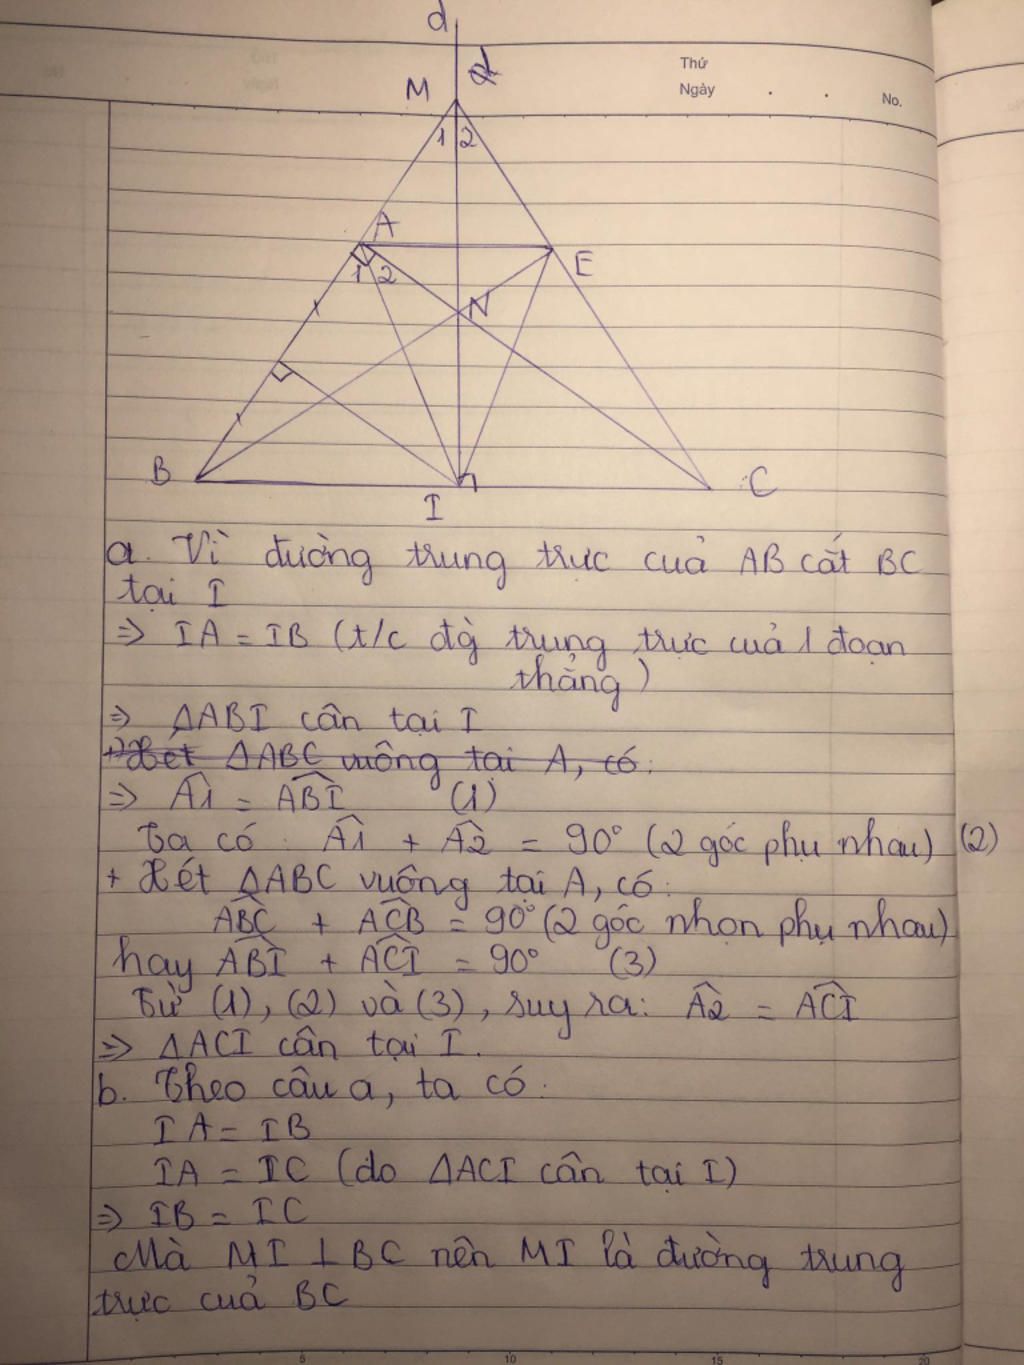 d
Thứ
Ngày . .
No.
M
1 2
A
1 2
E
N
B
I
C
a. Vì đường trung trực của AB cắt BC
tại I
=> IA = IB (t/c đg̀ trung trực của 1 đoạn
thẳng)
=> ΔABI cân tại I
+) Xét ΔABC vuông tại A, có:
=> Â1 = ABI^ (1)
Ta có: Â1 + Â2 = 90° (2 góc phụ nhau) (2)
+ Xét ΔABC vuông tại A, có:
ABC^ + ACB^ = 90° (2 góc nhọn phụ nhau)
hay ABI^ + ACI^ = 90° (3)
Từ (1), (2) và (3), suy ra: Â2 = ACI^
=> ΔACI cân tại I.
b. Theo câu a, ta có:
IA = IB
IA = IC (do ΔACI cân tại I)
=> IB = IC
Mà MI ⊥ BC nên MI là đường trung
trực của BC
5 10 15 20